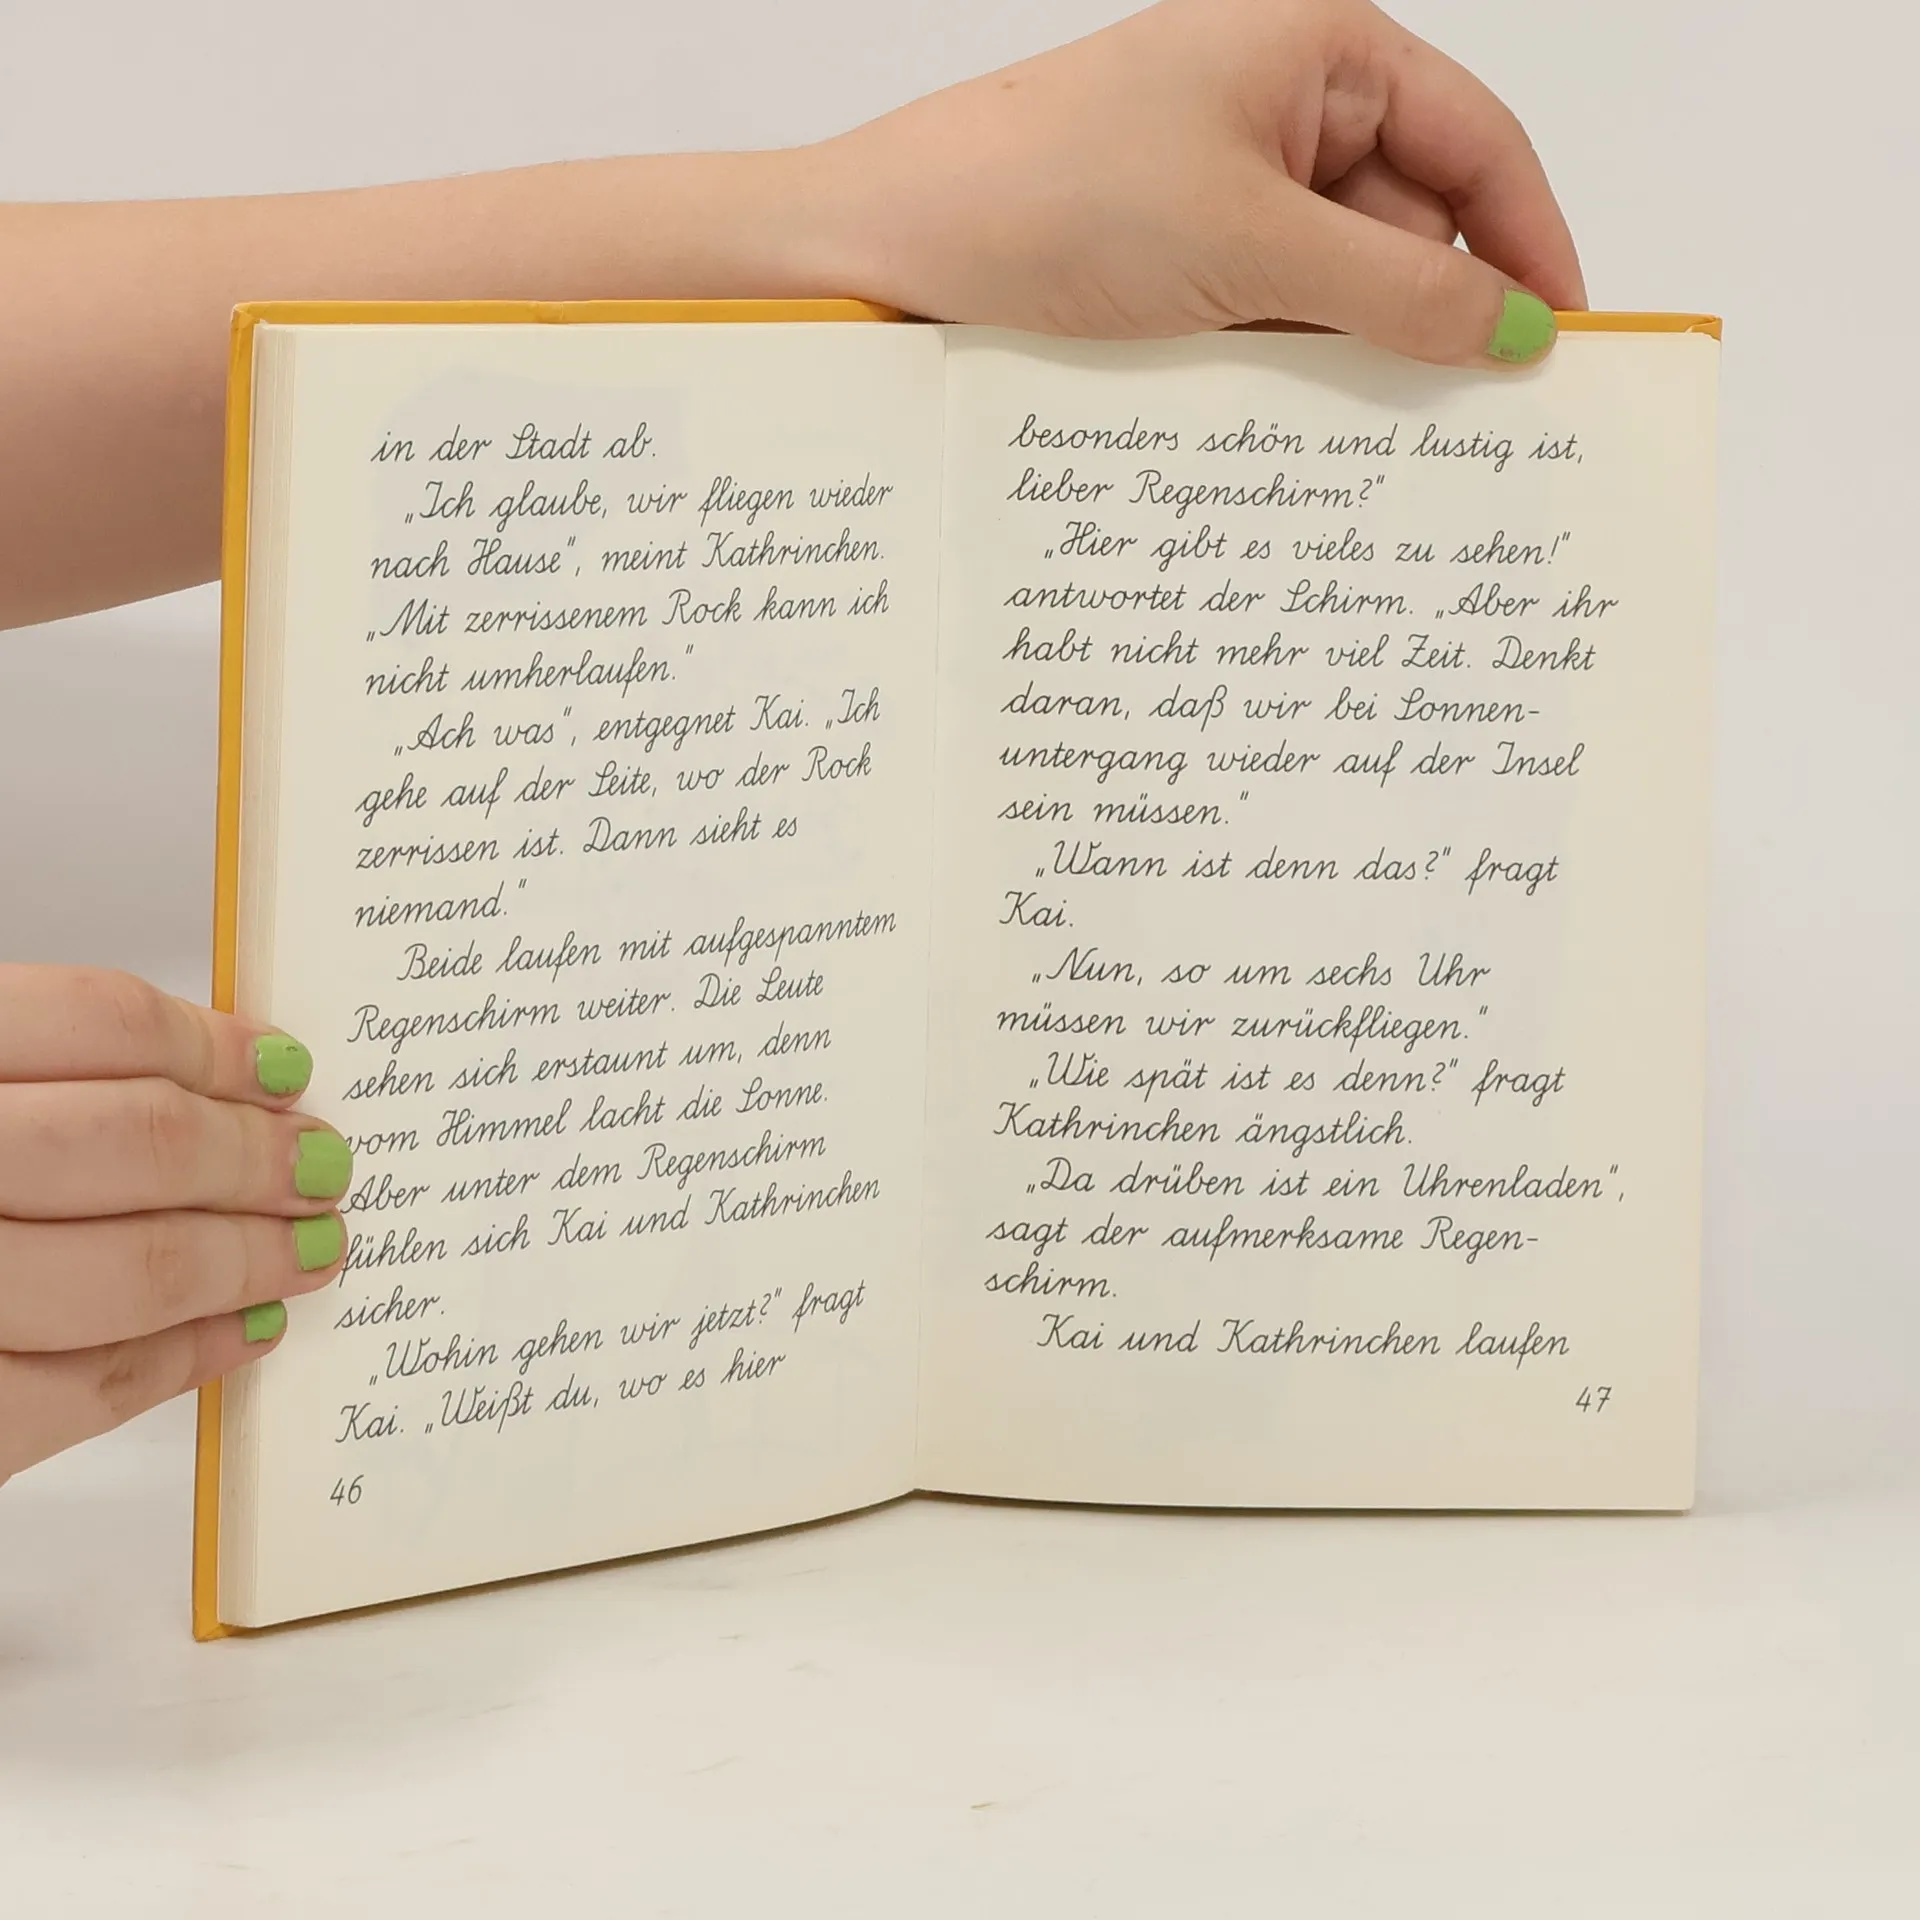 in der Stadt ab.
„Ich glaube, wir fliegen wieder
nach Hause", meint Kathrinchen.
„Mit zerrissenem Rock kann ich
nicht umherlaufen."
„Ach was", entgegnet Kai. „Ich
gehe auf der Seite, wo der Rock
zerrissen ist. Dann sieht es
niemand."
Beide laufen mit aufgespanntem
Regenschirm weiter. Die Leute
sehen sich erstaunt um, denn
vom Himmel lacht die Sonne.
Aber unter dem Regenschirm
fühlen sich Kai und Kathrinchen
sicher.
„Wohin gehen wir jetzt?" fragt
Kai. „Weißt du, wo es hier
46
besonders schön und lustig ist,
lieber Regenschirm?"
„Hier gibt es vieles zu sehen!"
antwortet der Schirm. „Aber ihr
habt nicht mehr viel Zeit. Denkt
daran, daß wir bei Sonnen-
untergang wieder auf der Insel
sein müssen."
„Wann ist denn das?" fragt
Kai.
„Nun, so um sechs Uhr
müssen wir zurückfliegen."
„Wie spät ist es denn?" fragt
Kathrinchen ängstlich.
„Da drüben ist ein Uhrenladen",
sagt der aufmerksame Regen-
schirm.
Kai und Kathrinchen laufen
47